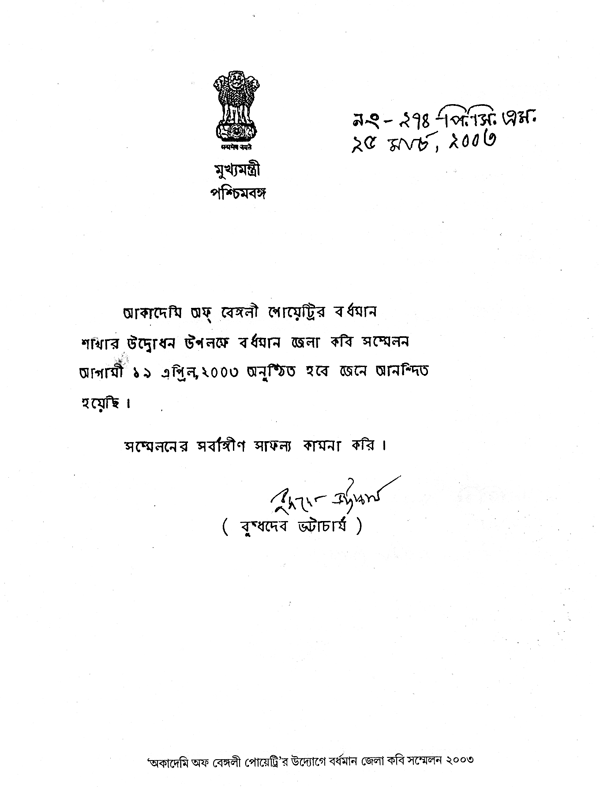 নং - ২৭৪ - পি.সি.এম.
২৫ মার্চ, ২০০৩
सत्यमेव जयते
মুখ্যমন্ত্রী
পশ্চিমবঙ্গ
আকাদেমি অফ্ বেঙ্গলী পোয়েট্রির বর্ধমান
শাখার উদ্বোধন উপলক্ষে বর্ধমান জেলা কবি সম্মেলন
আগামী ১৯ এপ্রিল,২০০৩ অনুষ্ঠিত হবে জেনে আনন্দিত
হয়েছি ।
সম্মেলনের সর্বাঙ্গীণ সাফল্য কামনা করি ।
বুদ্ধদেব ভট্টাচার্য
( বুদ্ধদেব ভট্টাচার্য )
'অকাদেমি অফ বেঙ্গলী পোয়েট্রি'র উদ্যোগে বর্ধমান জেলা কবি সম্মেলন ২০০৩